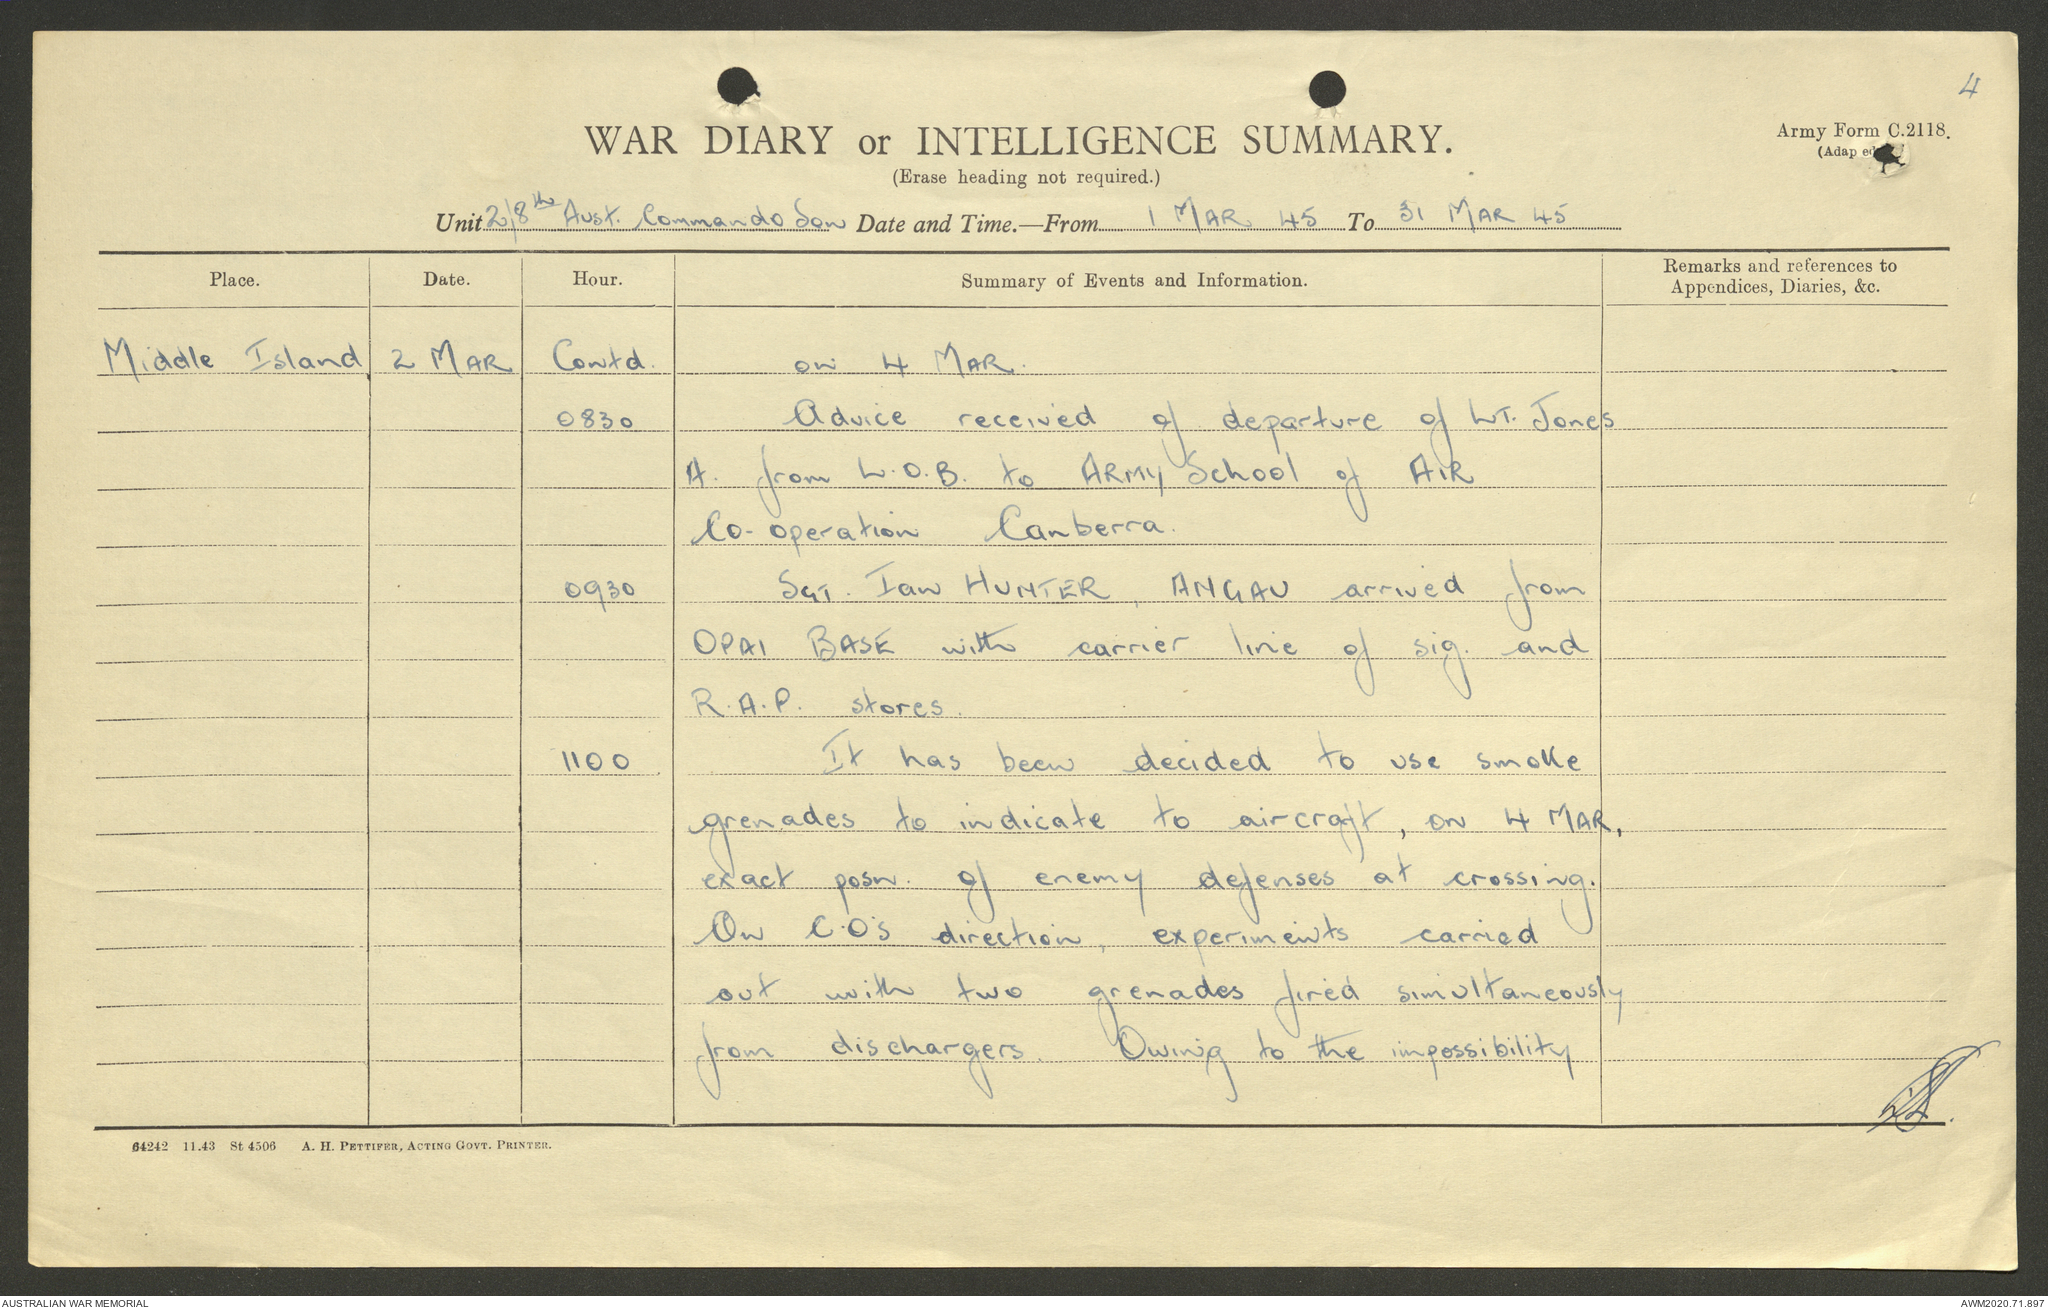 4
WAR DIARY or INTELLIGENCE SUMMARY.
Army Form C.2118.
(Adap ed
(Erase heading not required.)
Unit 2/8th Aust. Commando Sqn Date and Time.—From 1 MAR 45 To 31 MAR 45
Place. Date. Hour. Summary of Events and Information. Remarks and references to Appendices, Diaries, &c.
Middle Island 2 MAR Contd. on 4 MAR.
0830 Advice received of departure of LT. Jones
A. from L.O.B. to ARMY School of AIR
Co-operation Canberra.
0930 SGT. Ian HUNTER, ANGAU arrived from
OPAI BASE with carrier line of sig. and
R.A.P. stores.
1100 It has been decided to use smoke
grenades to indicate to aircraft, on 4 MAR,
exact posn. of enemy defenses at crossing.
On C.O's direction, experiments carried
out with two grenades fired simultaneously
from dischargers. Owing to the impossibility
64242 11.43 St 4506 A. H. PETTIFER, ACTING GOVT. PRINTER.
AUSTRALIAN WAR MEMORIAL
AWM2020.71.897